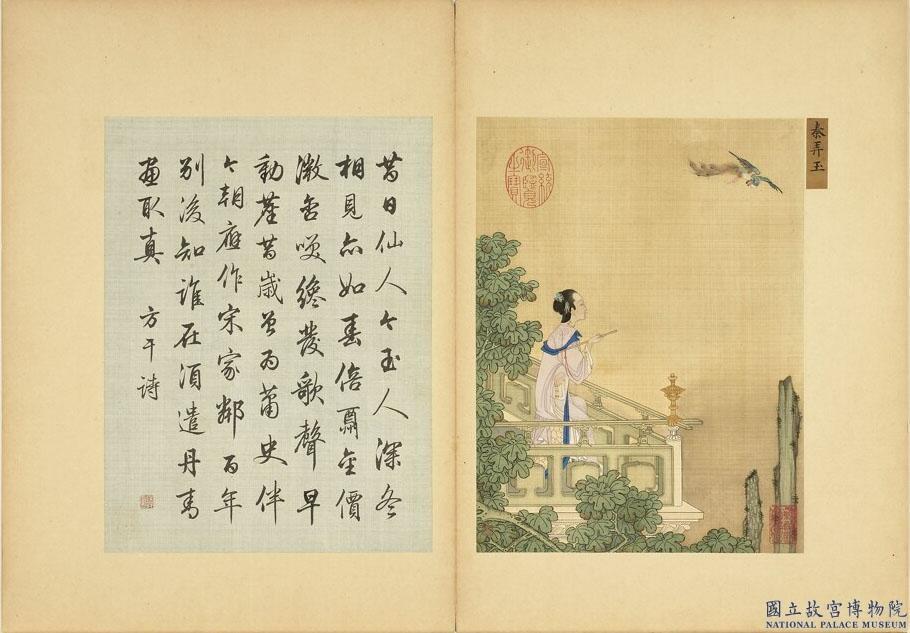 秦弄玉
宣統御覽之寶
昔日仙人今玉人深冬
相見亦如春倍金價
微含咲纔發歌聲早
動塵昔歲曾為蕭史伴
今朝應作宋家鄰百年
別後知誰在須遣丹青
畫取真 方干詩
國立故宮博物院
NATIONAL PALACE MUSEUM